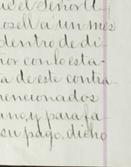 del Señor U
osell a un mes
dentro de di
por conlo esta
a de este contra
mencionados
uno, y para fa
su pago, dicho